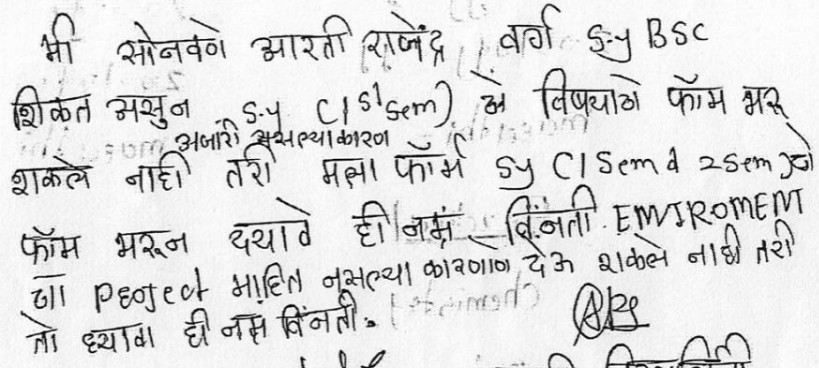 मी सोनवणे आरती राजेंद्र वर्ग S.y BSC
शिकत असुन S.y (1st Sem) चे विषयाचे फॉम भरू
अजारी असल्याकारण
शकले नाही तरी मला फॉर्म Sy (1 Sem व 2 Sem) चे
फॉम भरून दयावे ही नम्र विंनती. ENVIROMENT
चा Project माहित नसल्या कारणाने देऊ शकले नाही तरी
तो घ्यावा ही नम्र विंनती.